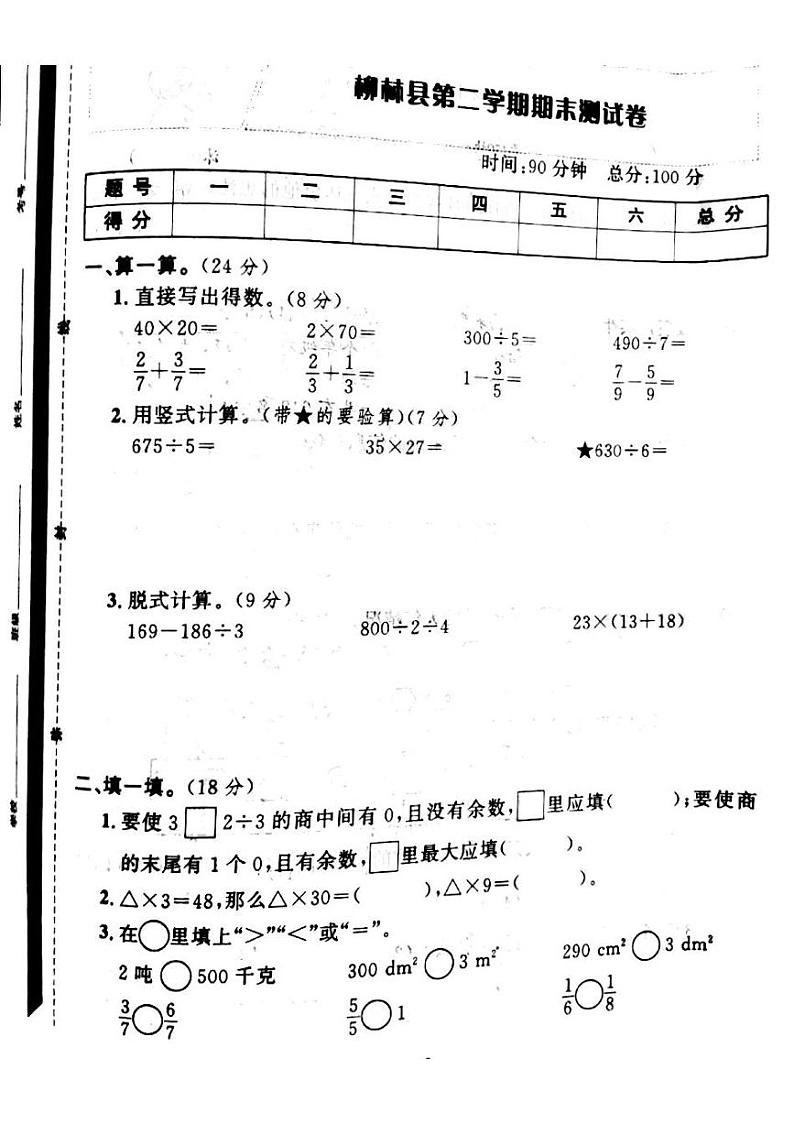 柳林县第二学期期末测试卷
时间:90分钟 总分:100分
题号 一 二 三 四 五 六 总分
得分
一、算一算。(24分)
1.直接写出得数。(8分)
40×20= 2×70= 300÷5= 490÷7=
2/7+3/7= 2/3+1/3= 1-3/5= 7/9-5/9=
2.用竖式计算。(带★的要验算)(7分)
675÷5= 35×27= ★630÷6=
3.脱式计算。(9分)
169-186÷3 800÷2÷4 23×(13+18)
二、填一填。(18分)
1.要使3□2÷3的商中间有0,且没有余数,□里应填( );要使商
的末尾有1个0,且有余数,□里最大应填( )。
2.△×3=48,那么△×30=( ),△×9=( )。
3.在○里填上“>”“<”或“=”。
2吨○500千克 300 dm²○3 m² 290 cm²○3 dm²
3/7○6/7 5/5○1 1/6○1/8
考号
姓名
班级
学校
线
封
密